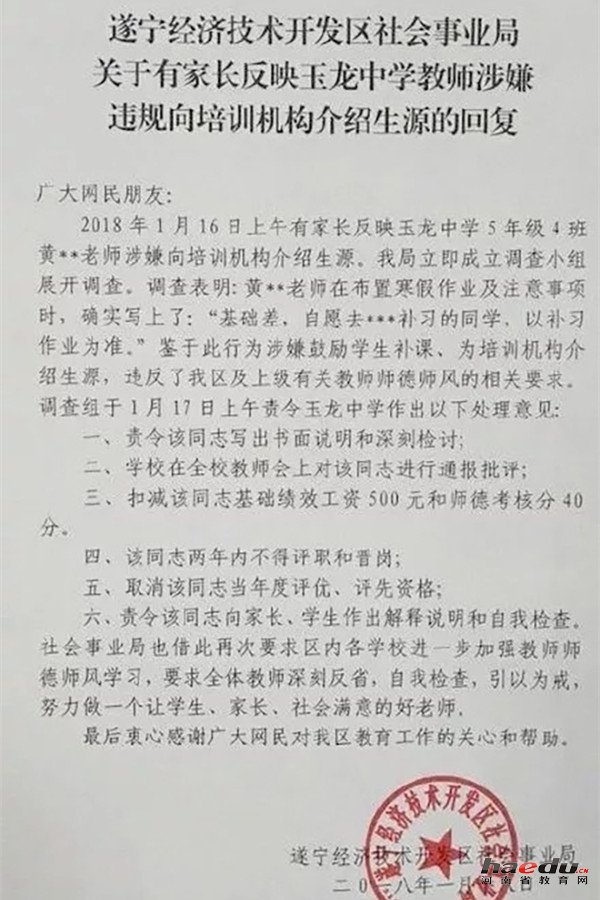 遂宁经济技术开发区社会事业局
关于有家长反映玉龙中学教师涉嫌
违规向培训机构介绍生源的回复
广大网民朋友：
2018年1月16日上午有家长反映玉龙中学5年级4班
黄**老师涉嫌向培训机构介绍生源。我局立即成立调查小组
展开调查。调查表明:黄**老师在布置寒假作业及注意事项
时，确实写上了：“基础差，自愿去***补习的同学，以补习
作业为准。”鉴于此行为涉嫌鼓励学生补课、为培训机构介
绍生源，违反了我区及上级有关教师师德师风的相关要求。
调查组于1月17日上午责令玉龙中学作出以下处理意见：
一、责令该同志写出书面说明和深刻检讨;
二、学校在全校教师会上对该同志进行通报批评;
三、扣减该同志基础绩效工资500元和师德考核分40
分。
四、该同志两年内不得评职和晋岗;
五、取消该同志当年度评优、评先资格;
六、责令该同志向家长、学生作出解释说明和自我检查。
社会事业局也借此再次要求区内各学校进一步加强教师师
德师风学习，要求全体教师深刻反省，自我检查，引以为戒，
努力做一个让学生、家长、社会满意的好老师.
最后衷心感谢广大网民对我区教育工作的关心和帮助。
经济技术开发区社
遂宁经济技术开发区社会事业局
二〇一八年一月十
haedu.cn
河南省教育网